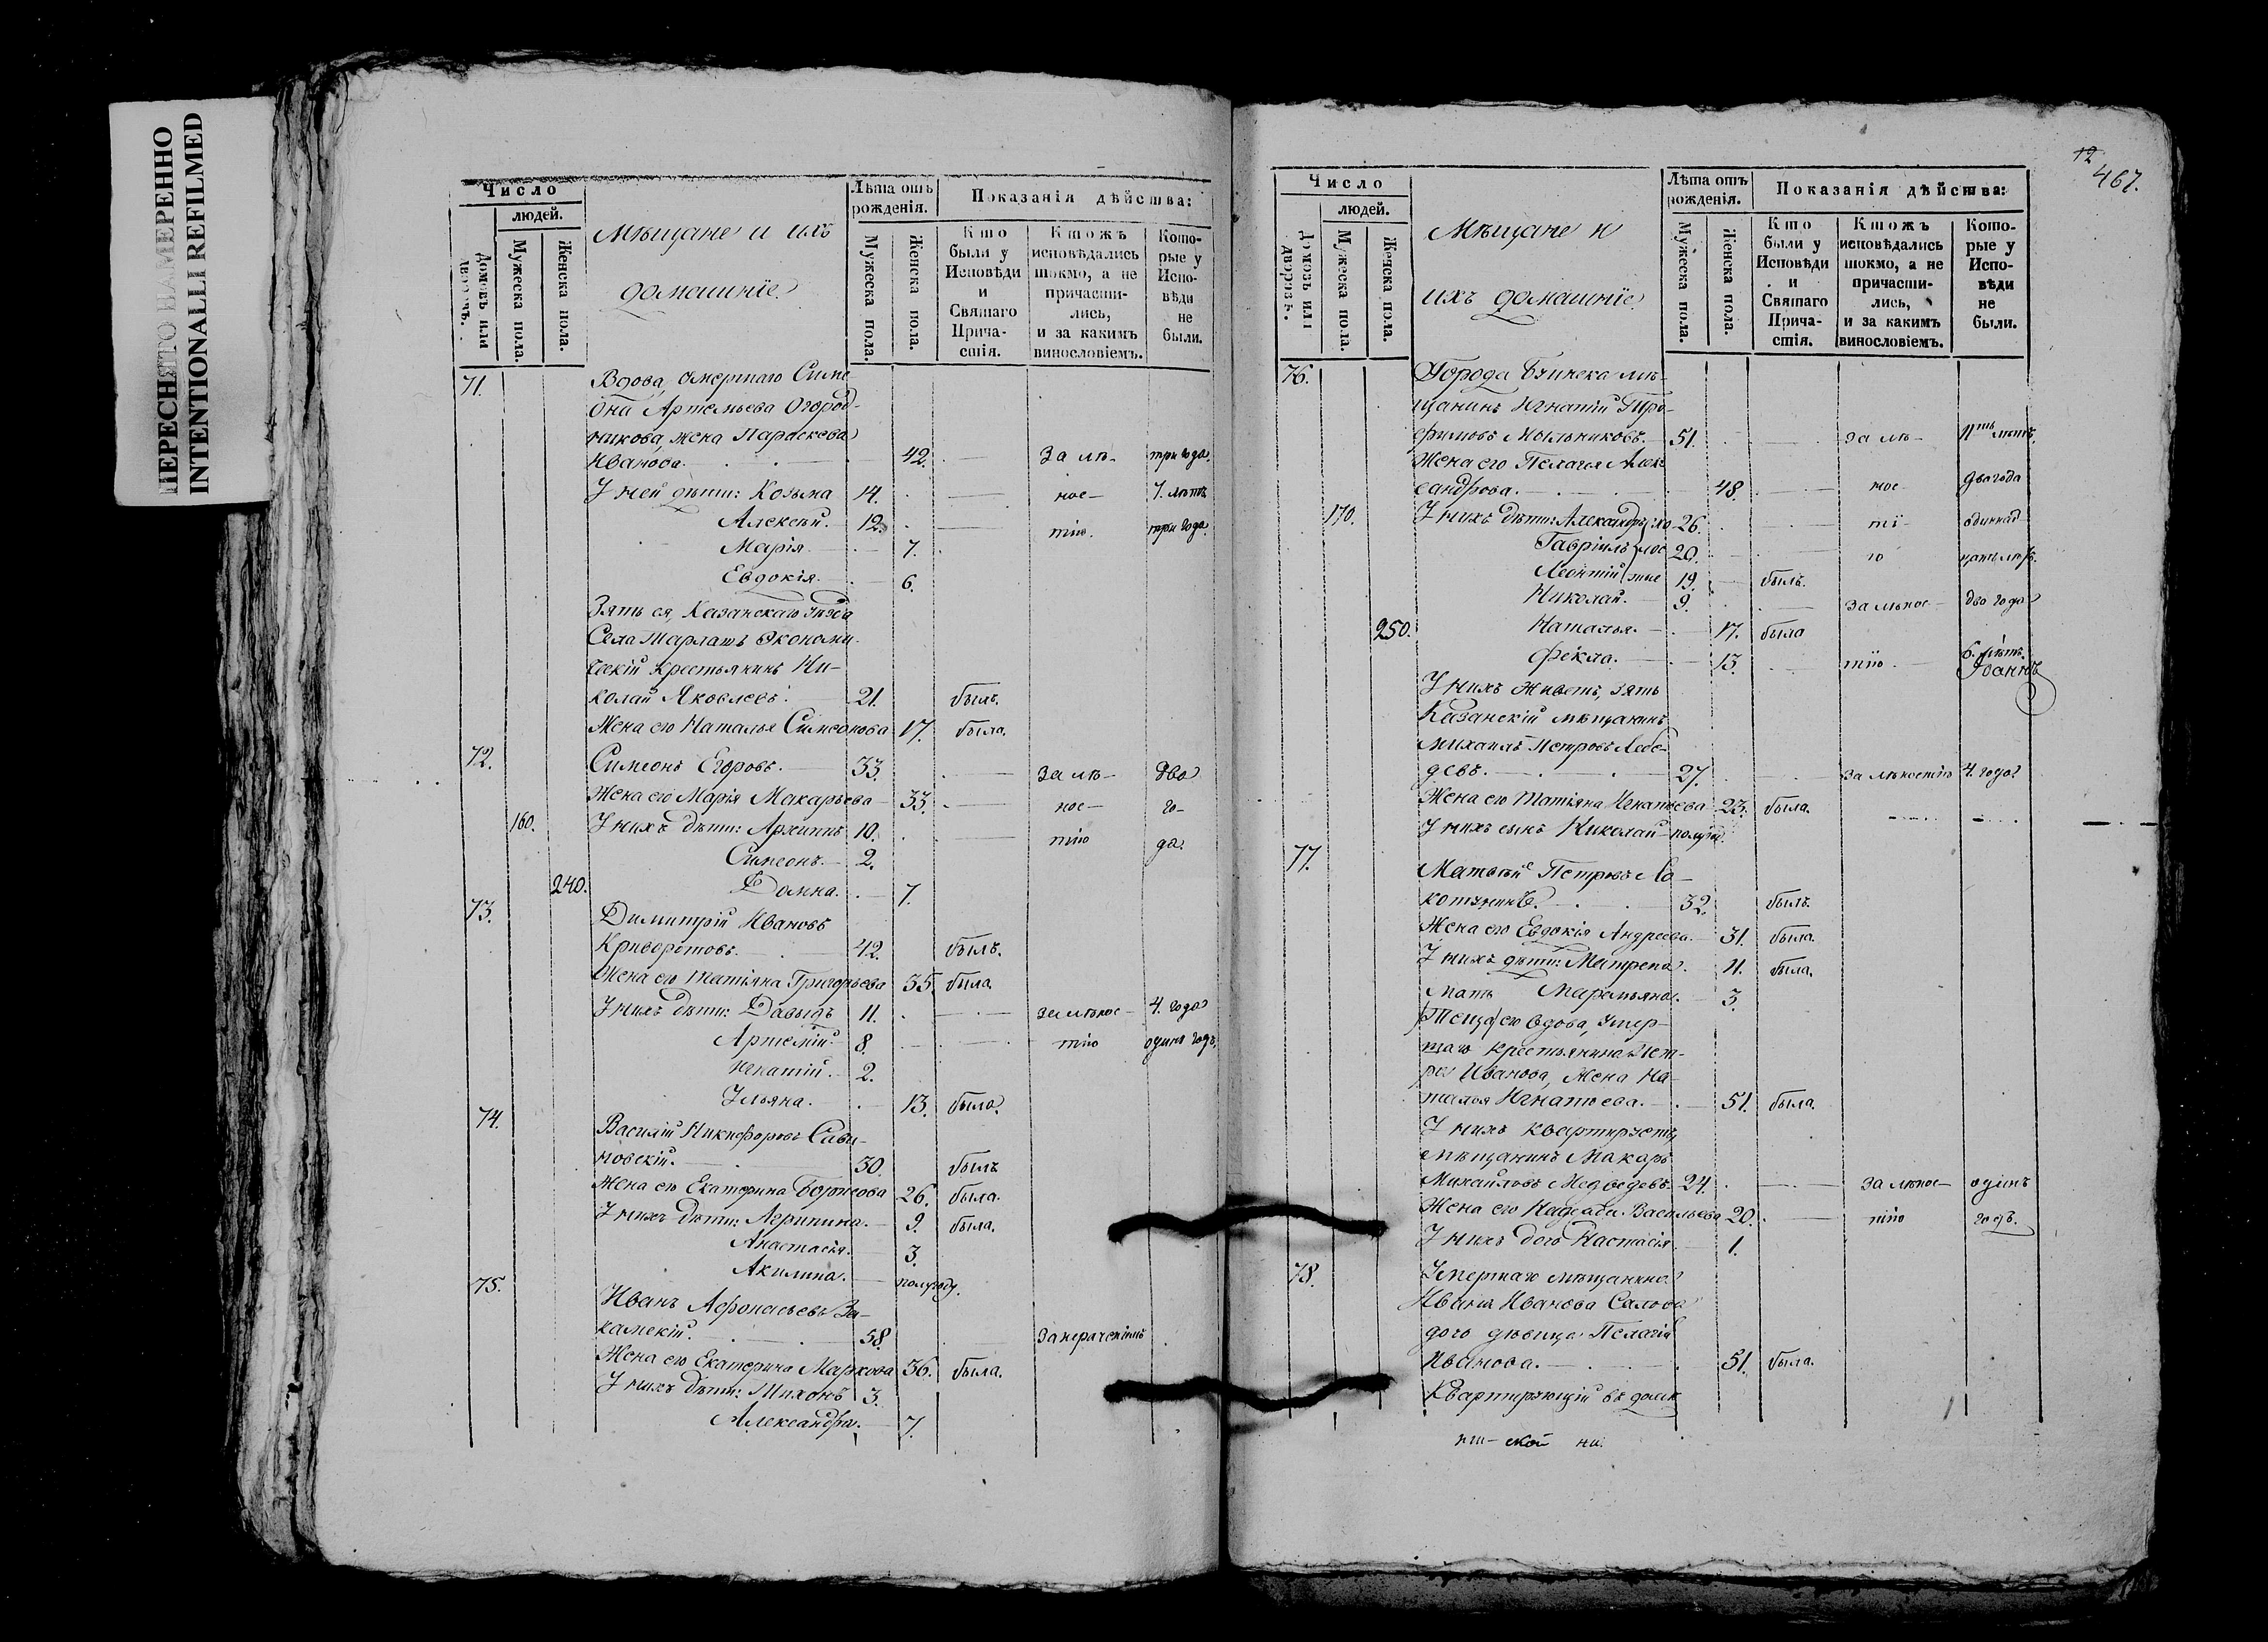 ПЕРЕСНЯТО НАМЕРЕННО
INTENTIONALLI REFILMED
Число
людей.
Домовъ или дворовъ.
Мужеска пола.
Женска пола.
Мѣщане и ихъ
домашніе
Лѣта отъ рожденія.
Мужеска пола.
Женска пола.
Показанія дѣйства:
Кто были у Исповѣди и Святаго Прича-стія.
Ктожъ исповѣдались токмо, а не причасти-лись, и за какимъ винословіемъ.
Кото-рые у Испо-вѣди не были.
71. Вдова, умершаго Симе-
она Артемьева Огород-
никова, жена Параскева
Иванова. 42. За лѣ- три года.
У ней дѣти: Козьма 14. нос- 7. лѣтъ
Алексѣй. 12. тію. три года.
Марія 7.
Евдокія. 6.
Зять ея, Казанскаго уѣзда
Села Шарлатъ Экономи-
ческій крестьянинъ Ни-
колай Яковлевъ. 21. былъ.
Жена его Наталья Симеонова 17. была.
72. Симеонъ Егоровъ. 33. за лѣ- два
Жена его Марія Макарьева 33. нос- го-
160. У нихъ дѣти: Архиппъ 10. тію да.
Симеонъ. 2.
240. Домна. 7.
73. Димитрій Ивановъ
Криворотовъ. 42. былъ.
Жена его Татіяна Григорьева 35. была
У нихъ дѣти: Давыдъ 11. за лѣнос- 4. года
Артемій. 8. тію одинъ годъ.
Игнатій. 2.
Ульяна. 13. была.
74. Василій Никифоровъ Сави-
новскій. 30. былъ
Жена его Екатерина Борисова 26. была.
У нихъ дѣти: Агрипина. 9. была.
Анастасія. 3.
Акилина. полугоду.
75. Иванъ Афонасьевъ За-
камскій. 58.
Жена его Екатерина Маркова 36. была.
У нихъ дѣти: Тихонъ 3.
Александра. 7.
12
467.
Число
людей.
Домовъ или дворовъ.
Мужеска пола.
Женска пола.
Мѣщане и
ихъ домашніе
Лѣта отъ рожденія.
Мужеска пола.
Женска пола.
Показанія дѣйства:
Кто были у Исповѣди и Святаго Прича-стія.
Ктожъ исповѣдались токмо, а не причасти-лись, и за какимъ винословіемъ.
Кото-рые у Испо-вѣди не были.
76. Города мѣ-
щанинъ Игнатій Тро-
фимовъ Мыльниковъ. 51. за лѣ- 11ть лѣтъ.
Жена его Пелагья Алек-
сандрова. 48. нос- два года
170. У нихъ дѣти: Александръ хо- 26. ті- одиннад-
Гавріилъ лос- 20. ю цать лѣтъ.
Леонтій тые 19. былъ.
Николай. 9. за лѣнос- два года
250. Наталья. 17. была
Фекла. 13. тію 6. лѣтъ.
У нихъ живетъ, зять
Казанскій мѣщанинъ
Михаилъ Петровъ Лебе-
девъ. 27. за лѣностію 4. года
Жена его Татіяна Игнатьева 23. была.
У нихъ сынъ Николай полуго.
77. Матвѣй Петровъ Ло-
котунинъ. 32. былъ.
Жена его Евдокія Андреева. 31. была.
У нихъ дѣти: Матрена. 11. была.
Мать Маремьяна. 3.
(Теща) его вдова, умер-
шаго крестьянина Пет-
ра Иванова, жена На-
талья Игнатьева. 51. была.
У нихъ квартируетъ,
мѣщанинъ Макаръ
Михайловъ Медведевъ. 24. за лѣнос- одинъ
Жена его Надежда Васильева 20. тію годъ.
У нихъ дочь Настасія 1.
78. Умершаго мѣщанина
Ивана Иванова Салова
дочь дѣвица Пелагія
Иванова. 51. была.
Квартирующій въ домѣ